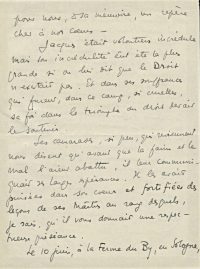 pour nous, à sa mémoire, un repère
cher à nos cœurs -
Jacques était volontiers incrédule
mais son incrédulité eut été la plus
grande si on lui dit que le Droit
n'existait pas. Et dans ses souffrances
qui furent, dans ce camp, si cruelles
sa foi dans le triomphe du droit devait
le soutenir.
Ses camarades, si peu, qui reviennent
nous disent qu'avant que la faim et le
mal l'aient abattu, il leur communi-
quait son espérance. Il les avait
puisées dans son cœur et fortifiées des
leçons de ses Maîtres au rang desquels,
je sais, qu'il vous donnait une respec-
tueuse préséance.
Le 10 juin, à la Ferme du By, en Sologne,